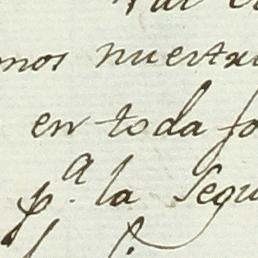 mos nuestra
en toda fo
p.ª la Segu